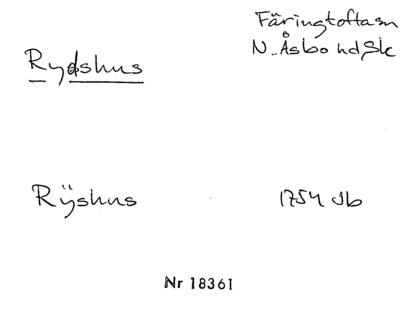 Färingtoftasn
Rydshus
N. Åsbo hd Sk
Rÿshus 1754 Jb
Nr 18361